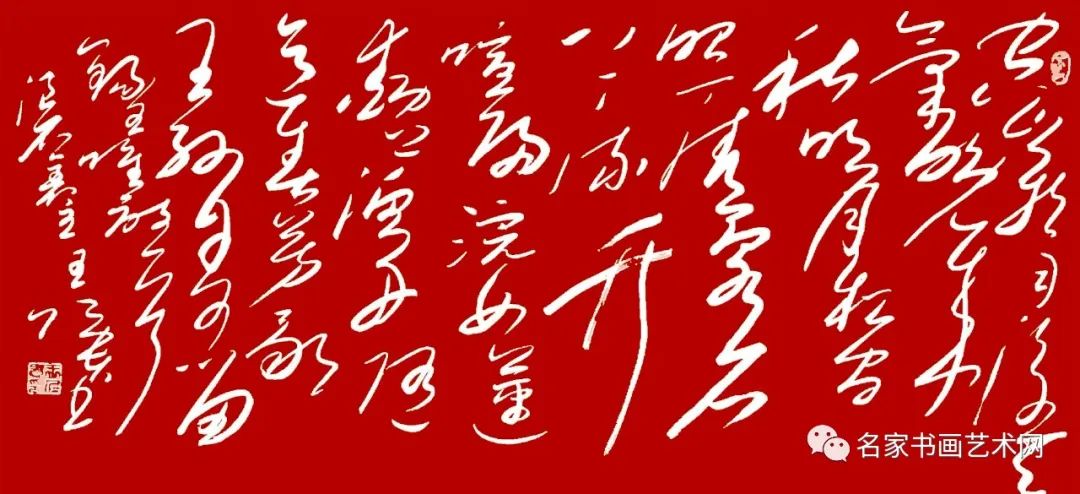 空山新雨后天
气晚来
秋明月松间
照清泉石
上流竹
喧归浣女莲
动下渔舟随
意春芳歇
王孙自可留
录王维诗一首
名家书画艺术网